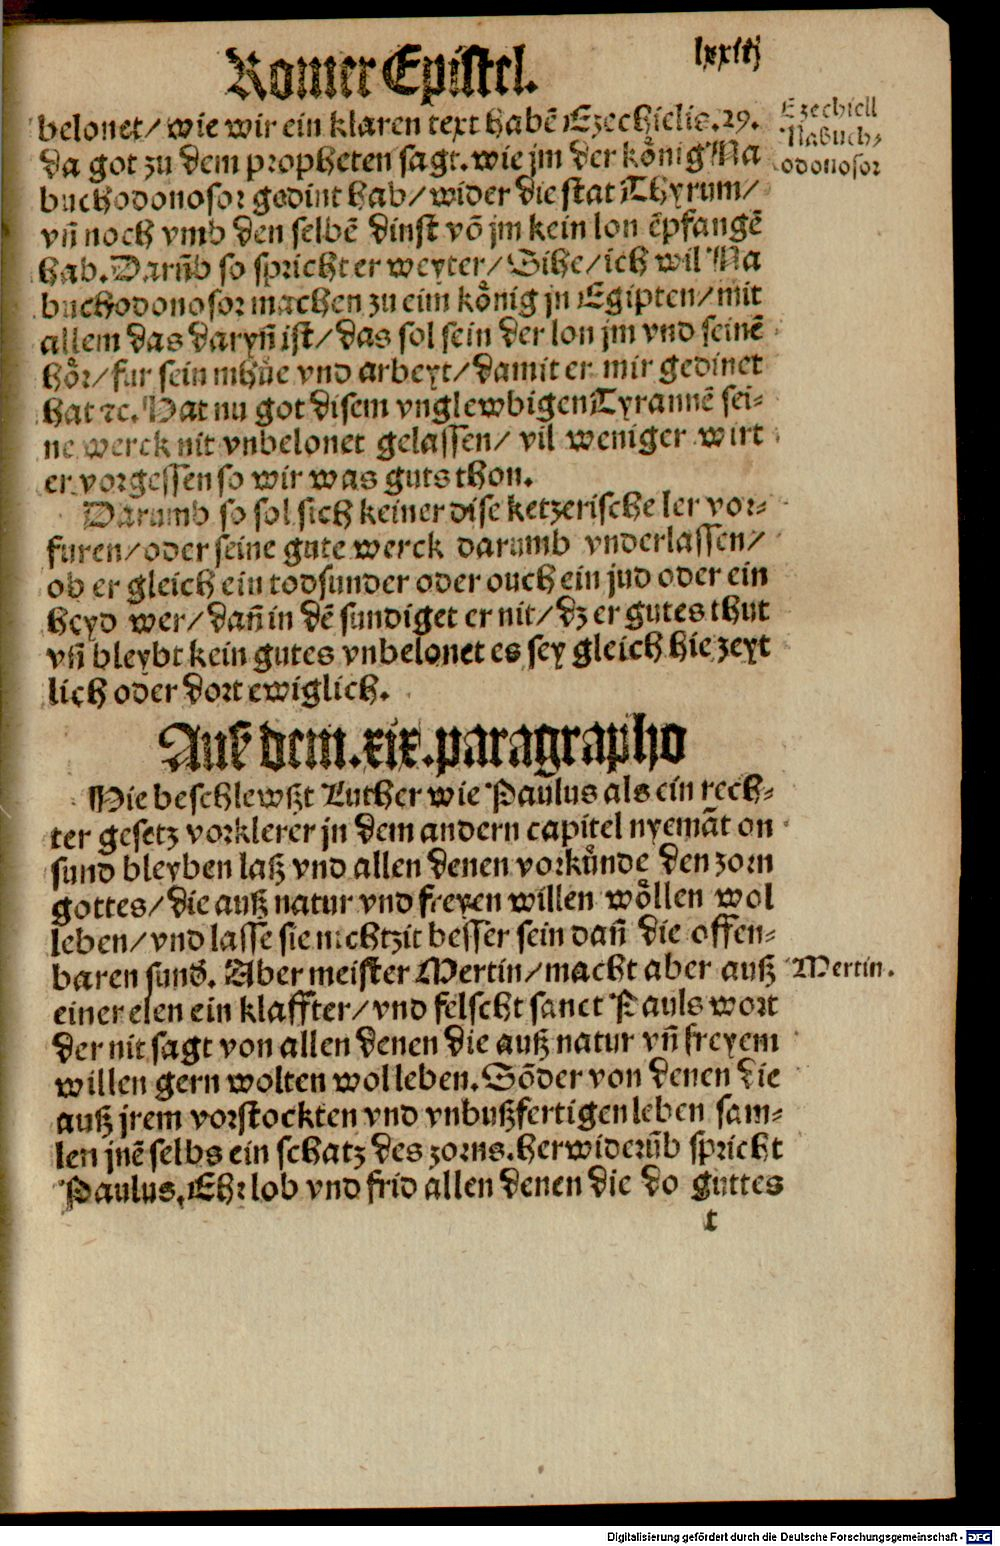 Romer Epistel.
lxxiij
belonet/ wie wir ein klaren text habē Ezechielis.29.
da got zu dem propheten sagt. wie jm der kőnig Na
buchodonosor gedint hab/ wider die stat Thyrum/
vñ noch vmb den selbē dinst vō jm kein lon ēpfangē
hab. Darūb so spricht er weyter/ Sihe/ ich wil Na
buchodonosor machen zu eim kőnig jn Egipten/ mit
allem das daryñ ist/ das sol sein der lon jm vnd seinē
hőr/ fur sein mhůe vnd arbeyt/ damit er mir gedinet
hat ꝛc. Hat nu got disem vnglewbigen Tyrannē sei-
ne werck nit vnbelonet gelassen/ vil weniger wirt
er vorgessen so wir was guts thon.
Darumb so sol sich keiner dise ketzerische ler vor-
furen/ oder seine gute werck darumb vnderlassen/
ob er gleich ein todsunder oder ouch ein jud oder ein
heyd wer/ dañ in dē sundiget er nit/ dz er gutes thut
vñ bleybt kein gutes vnbelonet es sey gleich hie zeyt
lich oder dort ewiglich.
Auß dem.xix.paragrapho
Hie beschlewßt Luther wie Paulus als ein rech-
ter gesetz vorklerer jn dem andern capitel nyemāt on
sund bleyben laß vnd allen denen vorkůnde den zorn
gottes/ die auß natur vnd freyen willen wőllen wol
leben/ vnd lassē sie nichtzit besser sein dañ die offen-
baren sund. Aber meister Mertin/ macht aber auß
einer elen ein klaffter/ vnd felscht sanct Pauls wort
der nit sagt von allen denen die auß natur vñ freyem
willen gern wolten wol leben. Sōder von denen die
auß jrem vorstockten vnd vnbußfertigen leben sam-
len jnē selbs ein schatz des zorns. herwiderūb spricht
Paulus, Ehr lob vnd frid allen denen die do guttes
t
Ezechiell
Nabuch-
odonosor
Mertin.
Digitalisierung gefördert durch die Deutsche Forschungsgemeinschaft - DFG